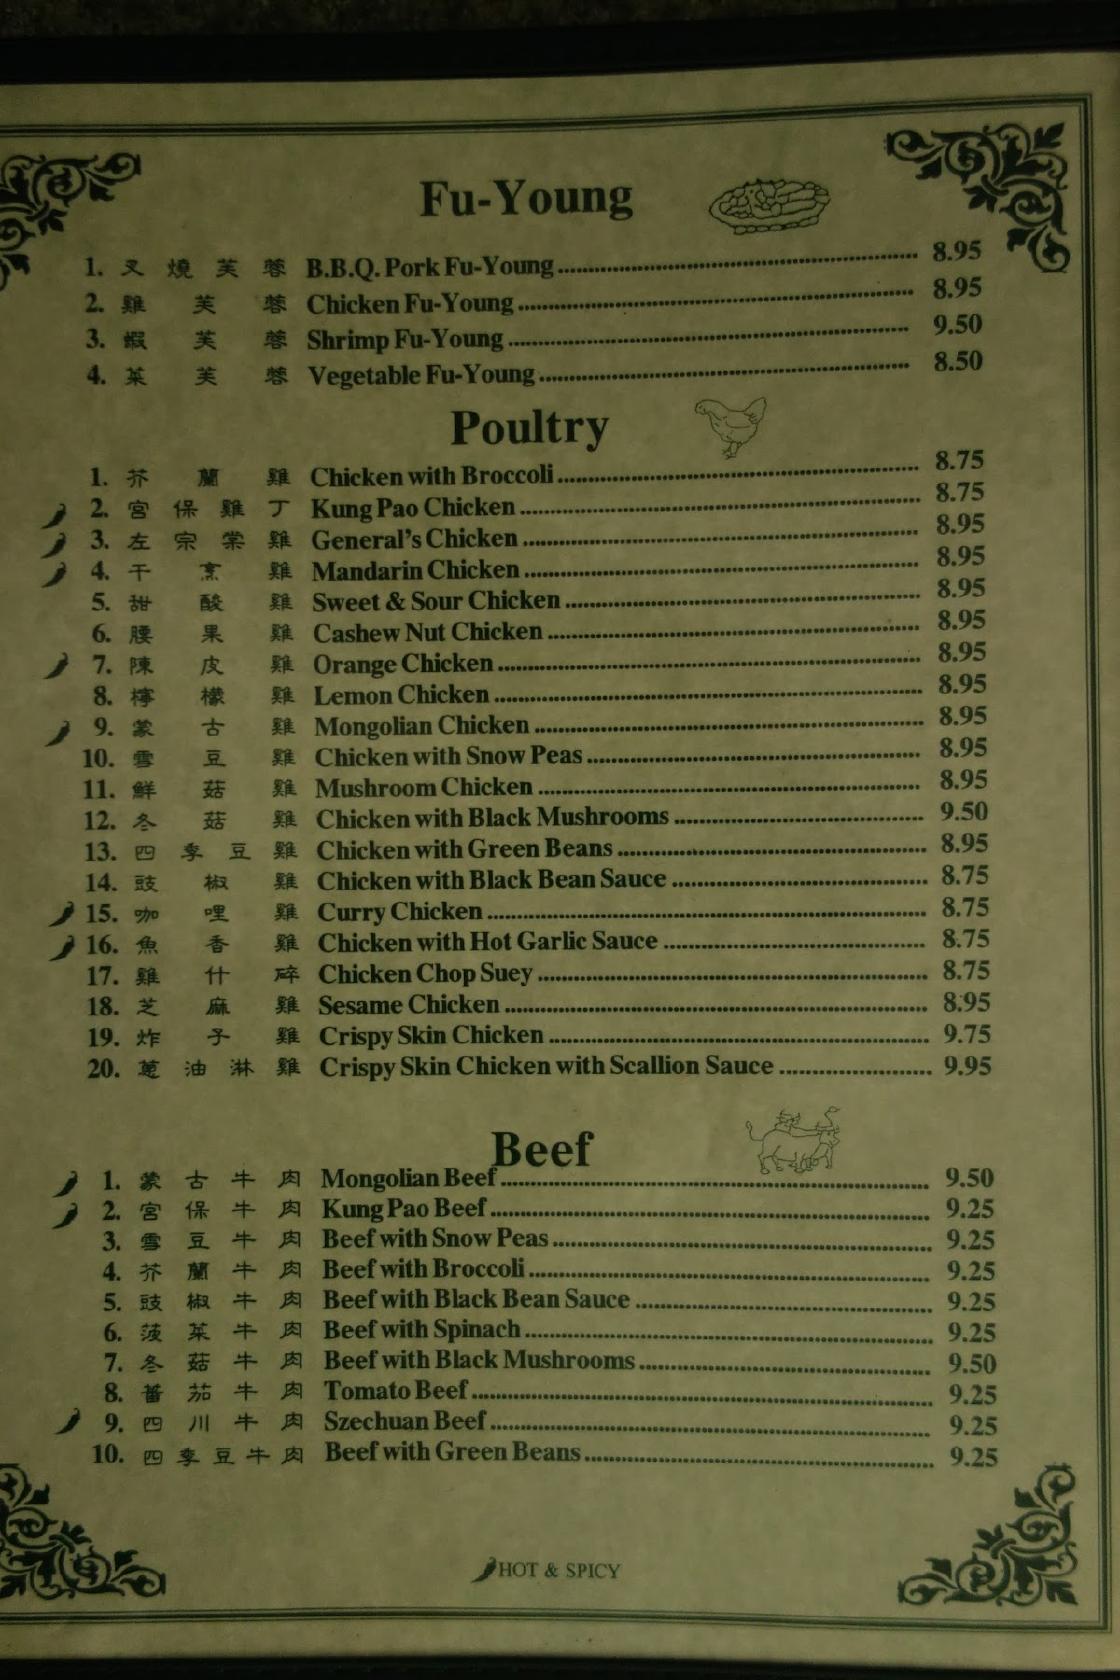 Fu-Young
1. 叉燒芙蓉 B.B.Q. Pork Fu-Young 8.95
2. 雞芙蓉 Chicken Fu-Young 8.95
3. 蝦芙蓉 Shrimp Fu-Young 9.50
4. 菜芙蓉 Vegetable Fu-Young 8.50
Poultry
1. 芥蘭雞 Chicken with Broccoli 8.75
2. 宮保雞丁 Kung Pao Chicken 8.75
3. 左宗棠雞 General's Chicken 8.95
4. 干烹雞 Mandarin Chicken 8.95
5. 甜酸雞 Sweet & Sour Chicken 8.95
6. 腰果雞 Cashew Nut Chicken 8.95
7. 陳皮雞 Orange Chicken 8.95
8. 檸檬雞 Lemon Chicken 8.95
9. 蒙古雞 Mongolian Chicken 8.95
10. 雪豆雞 Chicken with Snow Peas 8.95
11. 鮮菇雞 Mushroom Chicken 8.95
12. 冬菇雞 Chicken with Black Mushrooms 9.50
13. 四季豆雞 Chicken with Green Beans 8.95
14. 豉椒雞 Chicken with Black Bean Sauce 8.75
15. 咖哩雞 Curry Chicken 8.75
16. 魚香雞 Chicken with Hot Garlic Sauce 8.75
17. 雞什碎 Chicken Chop Suey 8.75
18. 芝麻雞 Sesame Chicken 8.95
19. 炸子雞 Crispy Skin Chicken 9.75
20. 蔥油淋雞 Crispy Skin Chicken with Scallion Sauce 9.95
Beef
1. 蒙古牛肉 Mongolian Beef 9.50
2. 宮保牛肉 Kung Pao Beef 9.25
3. 雪豆牛肉 Beef with Snow Peas 9.25
4. 芥蘭牛肉 Beef with Broccoli 9.25
5. 豉椒牛肉 Beef with Black Bean Sauce 9.25
6. 菠菜牛肉 Beef with Spinach 9.25
7. 冬菇牛肉 Beef with Black Mushrooms 9.50
8. 蕃茄牛肉 Tomato Beef 9.25
9. 四川牛肉 Szechuan Beef 9.25
10. 四季豆牛肉 Beef with Green Beans 9.25
HOT & SPICY